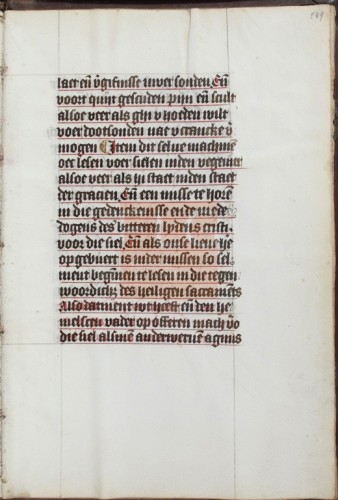 laet en̄ v̄gifnisse uwer sonden En̄
voort quijt gescuden pijn en̄ scult
also veer als ghi v hoeden wilt
voer dootsonden nae v crancke v̄
mogen Item dit selue machmē
oec lesen voer sielen inden vegeuier
also veer als ij staet inden staet
der gracien En̄ een misse te horē
in die gedenckenisse ende mede
dogens des bitteren lydens cristi
voor die siel En̄ als onse lieue he
op gebuert is inder missen so sel
ment beghinnen te lesen in die tegen
woordich des heiligen sacramēts
Also datment
melscen vader op offeren mach vo
die siel alsmē anderweruē agnus